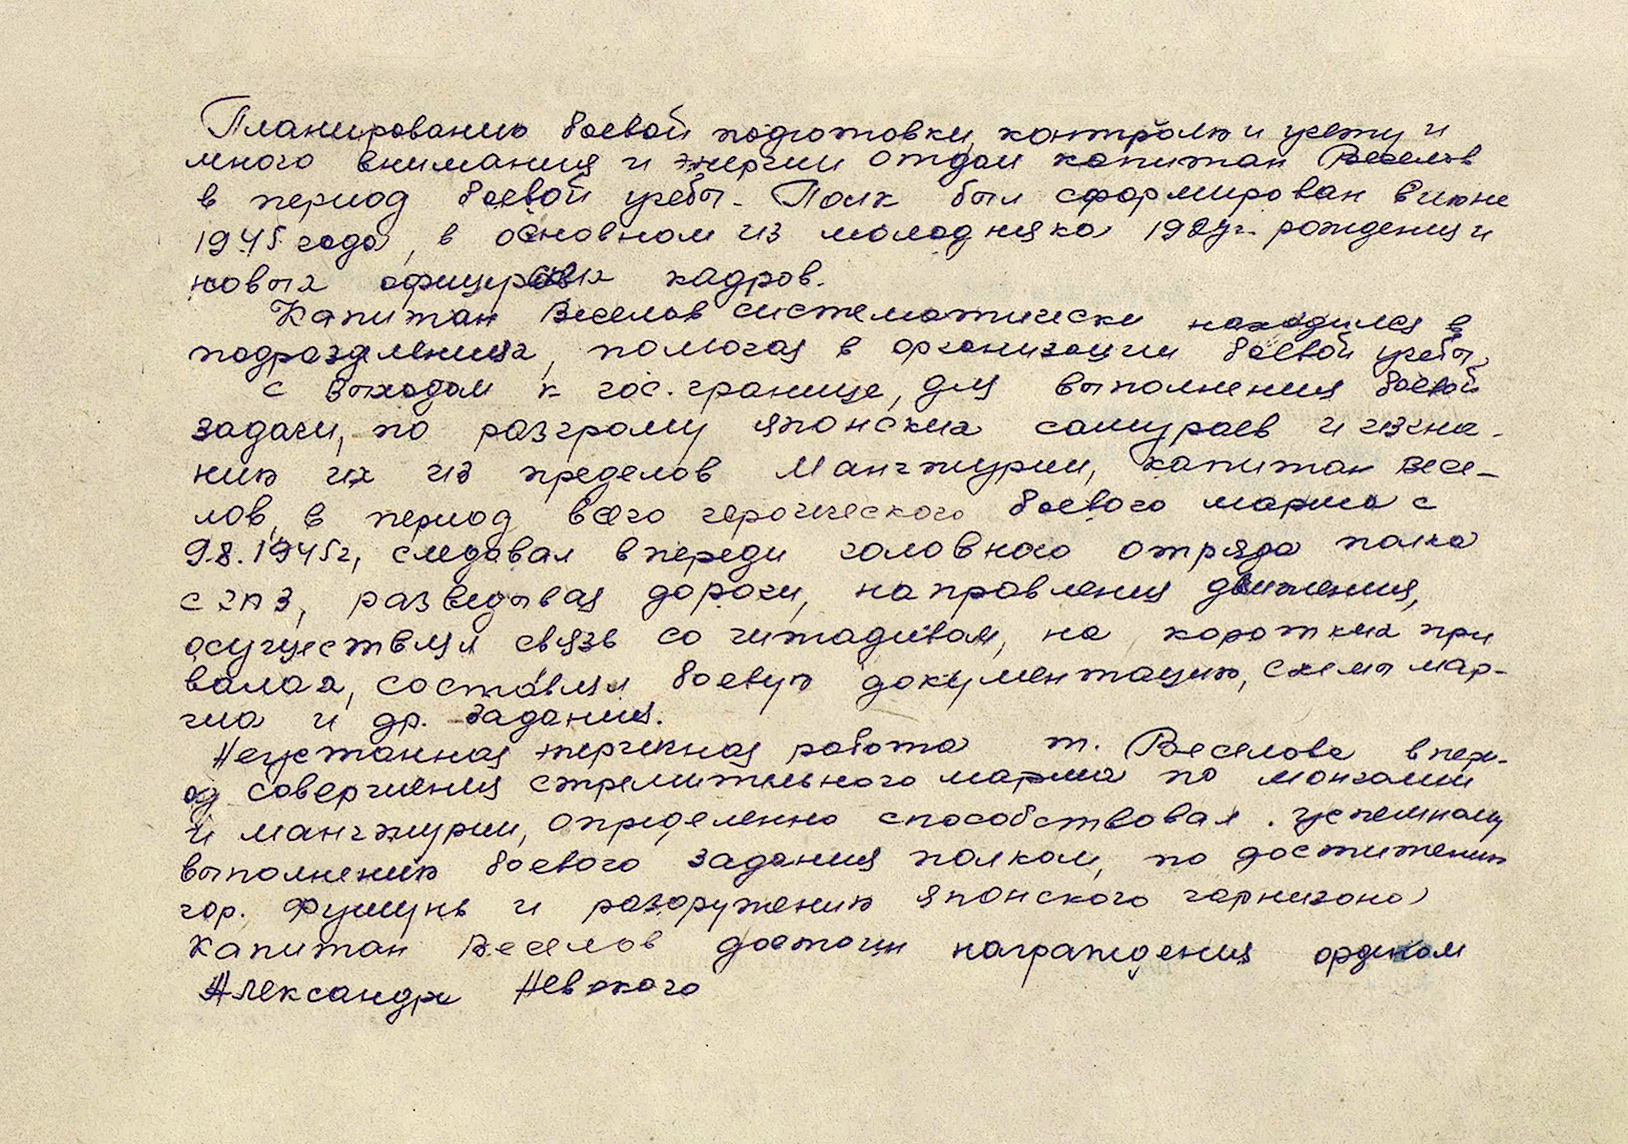 Планированию боевой подготовки, контролю и учету и
много внимания и энергии отдал капитан Веселов
в период боевой учебы. Полк был сформирован в июне
1945 года, в основном из молодняка рождения и
новых кадров.
Капитан Веселов систематически находился в
подразделениях, помогая в организации боевой учебы
с выходом к гос. границе, для выполнения боевой
задачи, по разгрому японских самураев и изгна-
нию их из пределов Манчжурии, капитан Весе-
лов, в период всего героического боевого марша с
9.8.1945г, следовал впереди головного отряда полка
с разведывая дороги, направления движения,
осуществлял связь со штадивом, на коротких при
валах, составлял боевую документацию, схемы мар-
ша и др. задания.
Неустанная энергичная работа т. Веселова в пери-
од совершения стремительного марша по монголии
и манчжурии, определенно способствовал. успешному
выполнению боевого задания полком, по достижению
гор. Фушунь и разоружению японского гарнизона
Капитан Веселов достоин награждения орденом
Александра Невского